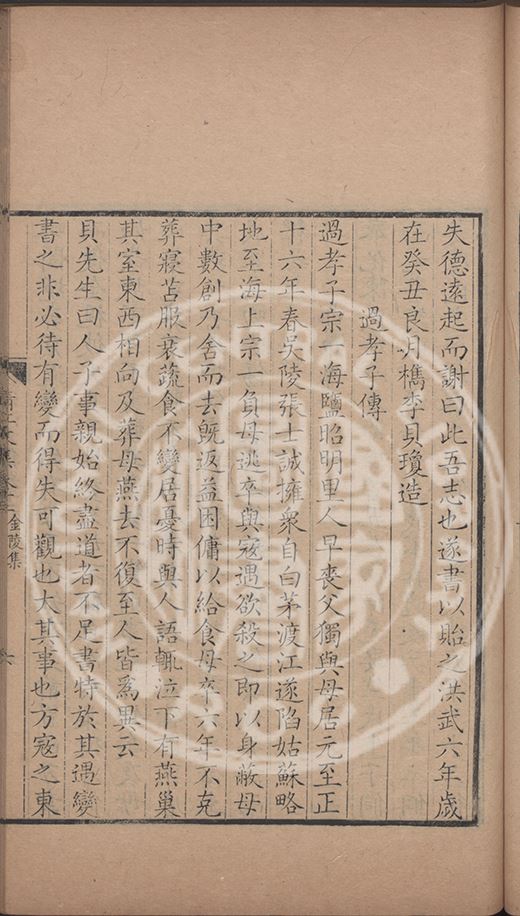 失德遠起而謝曰此吾志也遂書以貽之洪武六年歲
在癸丑良月檇李貝瓊造
過孝子傳
過孝子宗一海鹽昭明里人早喪父獨與母居元至正
十六年春吳陵張士誠擁衆自白茅渡江遂陷姑蘇略
地至海上宗一負母逃卒與寇遇欲殺之即以身蔽母
中數創乃舍而去旣返益困傭以給食母卒六年不克
葬寢苫服衰蔬食不變居憂時與人語輒泣下有燕巢
其室東西相向及葬母燕去不復至人皆爲異云
貝先生曰人子事親始終盡道者不足書特於其遇變
書之非必待有變而得失可觀也大其事也方寇之東
金陵集